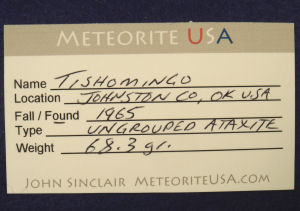 METEORITE USA
Name TISHOMINGO
Location JOHNSTON CO, OK USA
Fall / Found 1965
Type UNGROUPED ATAXITE
Weight 68.3 gr.
JOHN SINCLAIR METEORITEUSA.COM